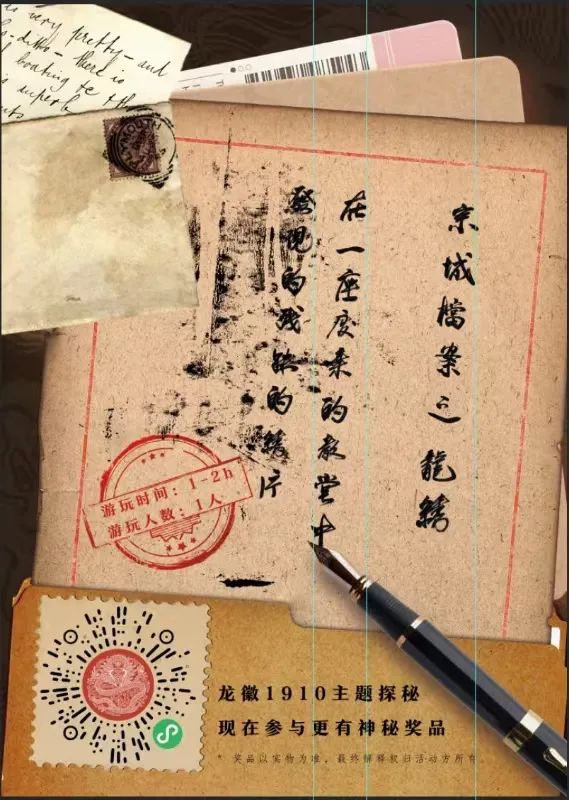 is very pretty- and
京城檔案之龍繡
在一座廢棄的教堂中
發現的殘缺的繡片
游玩时间：1-2h
游玩人数：1人
龙徽1910主题探秘
现在参与更有神秘奖品
* 奖品以实物为准，最终解释权归活动方所有